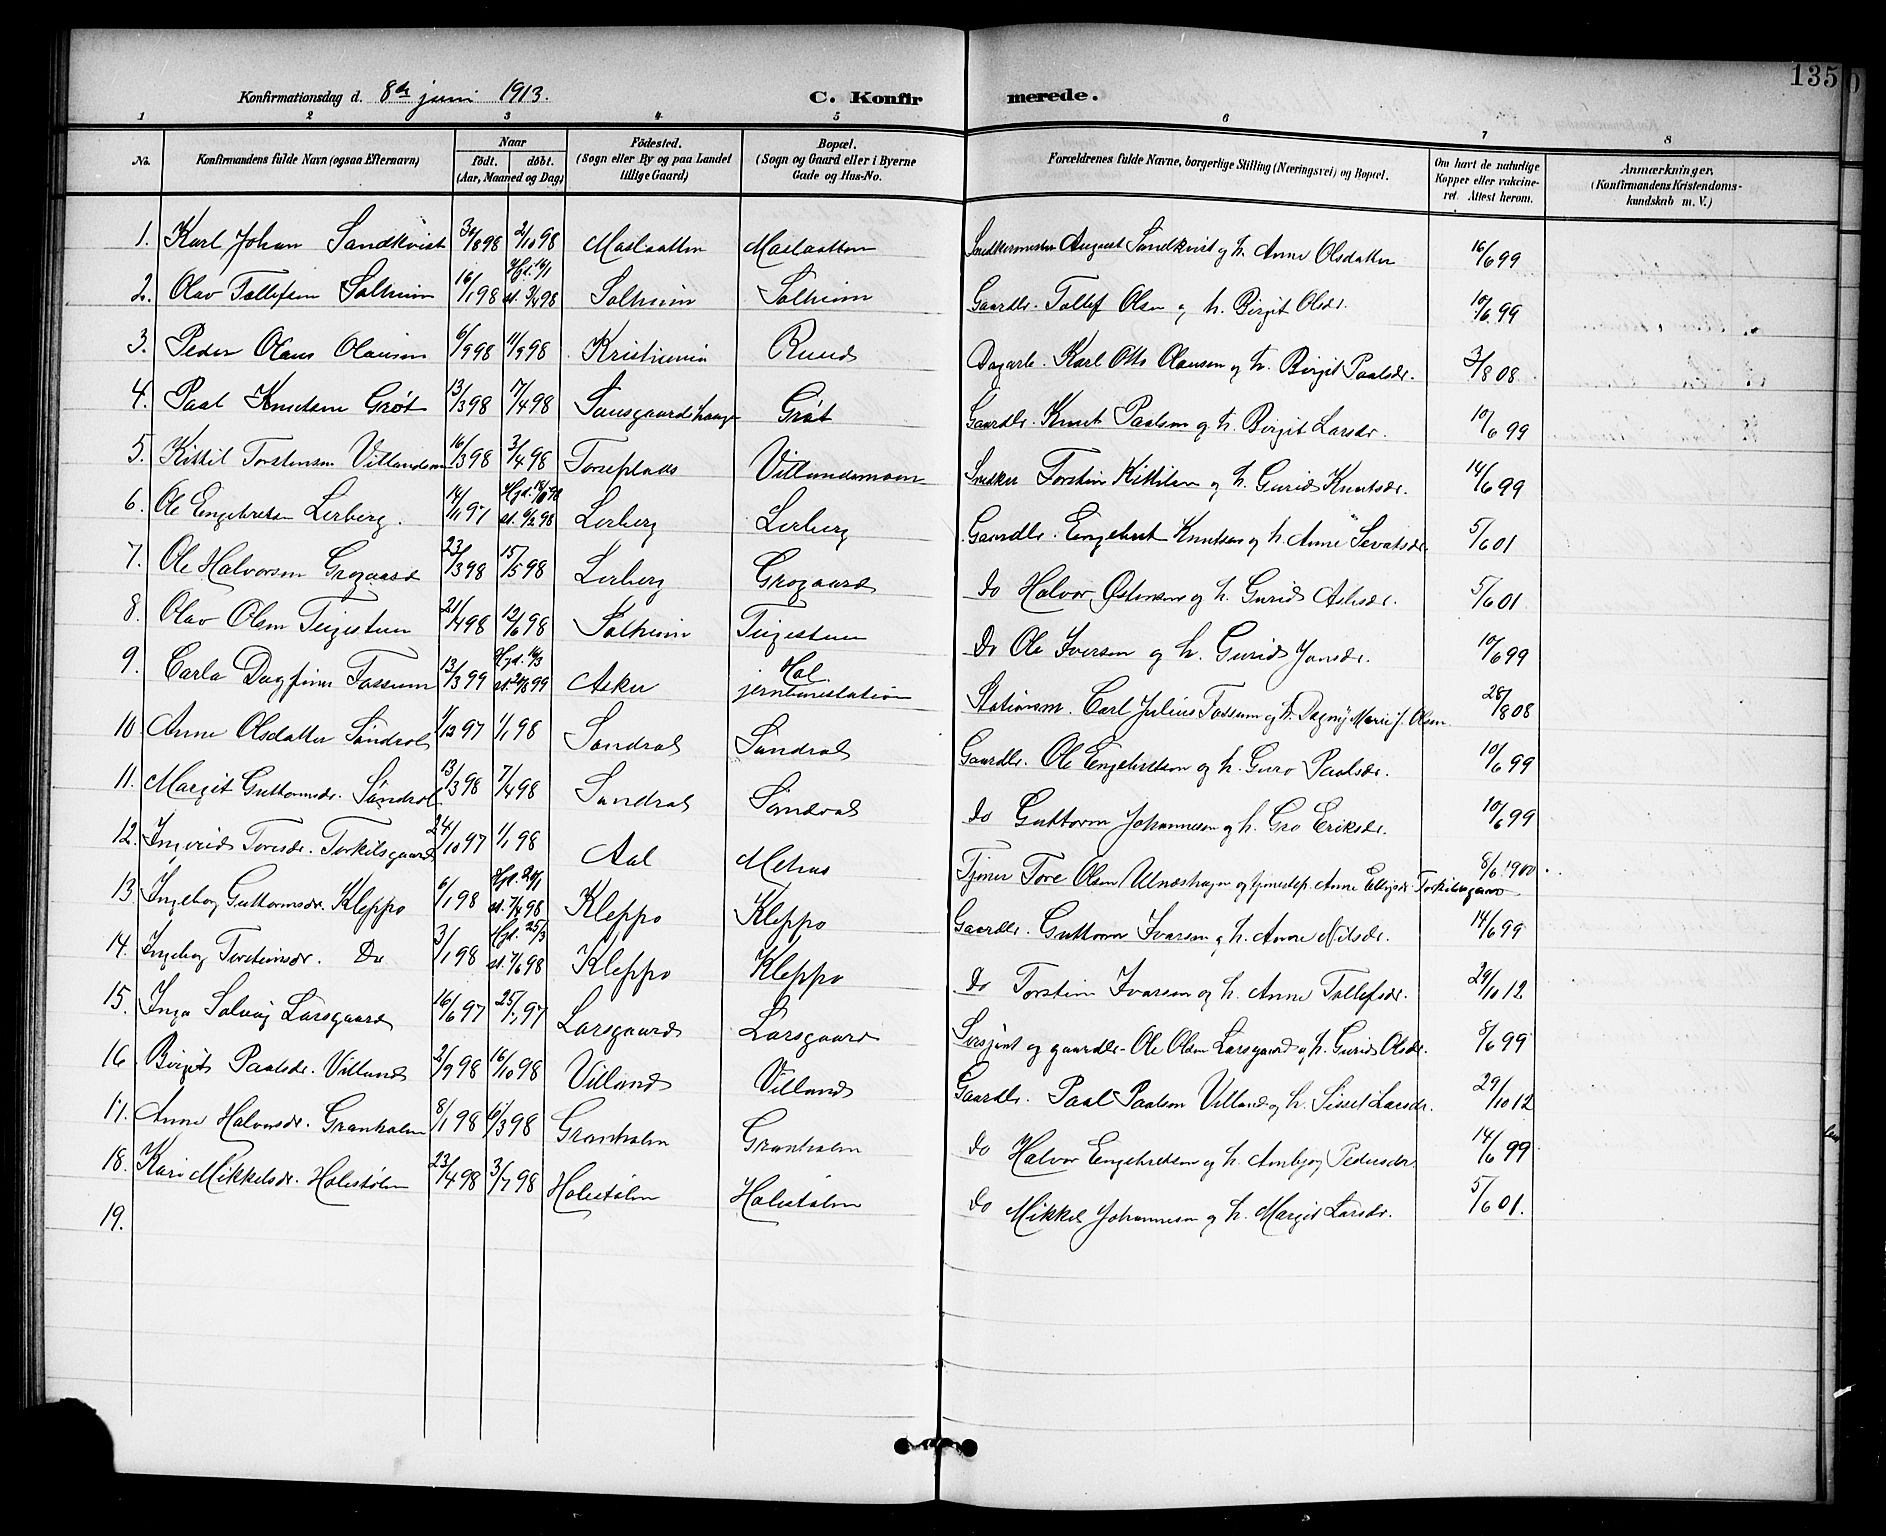 135
Konfirmationsdag d. 8de juni 1913. C. Konfirmerede.
1 2 3 4 5 6 7 8
No. Konfirmandens fulde Navn (ogsaa Efternavn) Naar født. døbt. (Aar, Maaned og Dag) Fødested. (Sogn eller By og paa Landet tillige Gaard) Bopæl. (Sogn og Gaard eller i Byerne Gade og Hus-No. Forældrenes fulde Navne, borgerlige Stilling (Næringsvei) og Bopæl. Om havt de naturlige Kopper eller vakcineret. Attest herom. Anmærkninger. (Konfirmandens Kristendomskundskab m. V.)
1. Karl Johan Sandkvist 30/8 98 2/10 98 Maslaatten Maslaatten Snedkermester August Sandkvist og h. Anne Olsdatter 16/6 99
2. Olav Tollefsen Solheim 16/1 98 Hjd. 16/1 st. 3/4 98 Solheim Solheim Gaardbr. Tollef Olsen og h. Birgit Olsdr. 10/6 99
3. Peder Olaus Olausen 6/9 98 11/9 98 Kristiania Ruud Dagarb. Karl Otto Olausen og h. Birgit Paalsdr. 3/8 08
4. Paal Knutsen Grøt 13/3 98 17/4 98 Grøt Gaardbr. Knut Paalsen og h. Birgit Larsdr. 10/6 99
5. Kittil Torstensen Villandsm 16/3 98 3/4 98 Torseplads Villandsmoen Snedker Torstein Kittilsen og h. Gurid Knutsdr. 14/6 99
6. Ole Engebretsen Lerberg. 14/11 97 st. 6/2 98 Lerberg Lerberg Gaardbr. Engebret Knutsen og h. Anne Sevatsdr. 5/6 01
7. Ole Halvorsen Grogaard 23/3 98 15/5 98 Lerberg Grogaard do Halvor Østensen og h. Gurid Aslesdr. 5/6 01
8. Olav Olsen Teigestuen 21/4 98 12/6 98 Solheim Teigestuen Do Ole Iversen og h. Gurid Jonsdr. 10/6 99
9. Carlo Dagfinn Fossum 13/3 99 Hjd. 16/3 st. 20/8 99 Asker Hol jernbanestation Stationsm. Carl Julius Fossum og h. Dagny Marie J. Olsen 28/8 08
10. Anne Olsdatter Søndrol 1/12 97 1/1 98 Sundrol Sundrol Gaardbr. Ole Engebretsen og h. Guro Paalsdr. 10/6 99
11. Margit Guttormsdr. Søndrol 13/3 98 17/4 98 Sundrol Sundrol do Guttorm Johannesen og h. Gro Eriksdr. 10/6 99
12. Ingerid Toresdr. Torkilsgaard 24/10 97 1/1 98 Aal Mehus Tjener Tore Olsen Ulneshagen og tjenestep. Anne Ellefsdr. Torkilsgaard 8/6 1900
13. Ingebog Guttormsdr. Kleppo 6/1 98 Hjd. 20/1 st. 7/4 98 Kleppo Kleppo Gaardbr. Guttorm Ivarsen og h. Anne Nilsdr. 14/6 99
14. Ingebog Torsteinsdr. Do 3/1 98 Hjd. 25/3 st. 7/6 98 Kleppo Kleppo do Torstein Ivarsen og h. Anne Tollefsdr. 29/10 12
15. Inga Solveig Larsgaard 16/6 97 25/7 97 Larsgaard Larsgaard Sersjant og gaardbr. Ole Olsen Larsgaard og h. Gurid Olsdr. 8/6 99
16 Birgit Paalsdr. Villand 2/9 98 16/10 98 Villand Villand Gaardbr. Paal Paalsen Villand og h. Sissel Larsdr. 29/10 12
17. Anne Halvorsdr. Granholm 8/1 98 6/3 98 Granholm Granholm do Halvor Engebretsen og h. Ambjog Pedersdr. 14/6 99
18. Kari Mikkelsdr. Holestølen 23/4 98 3/7 98 Holestølen Holestølen do Mikkel Johannesen og h. Margit Larsdr. 5/6 01.
19.